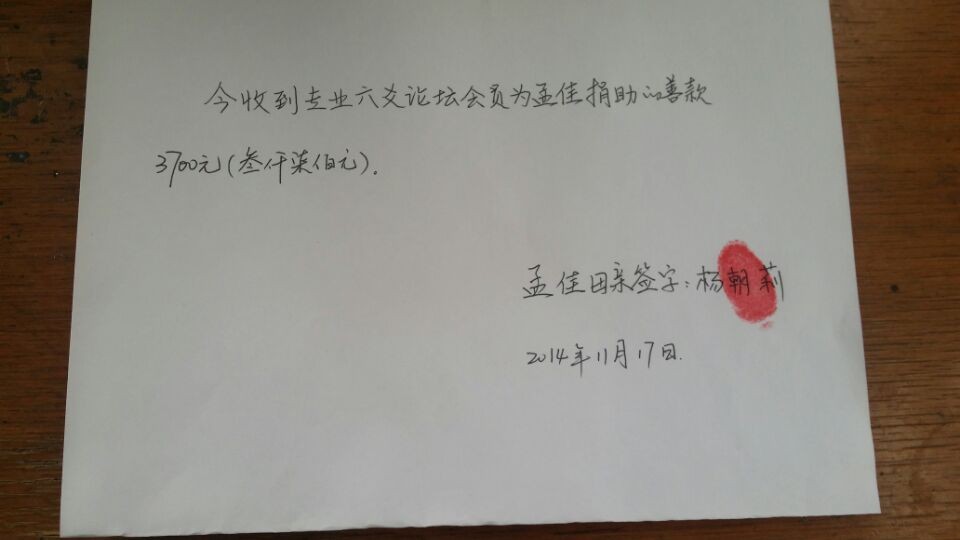 今收到专业六爻论坛会员为孟佳捐助的善款
3700元(叁仟柒佰元).
孟佳母亲签字:杨朝莉
2014年11月17日.